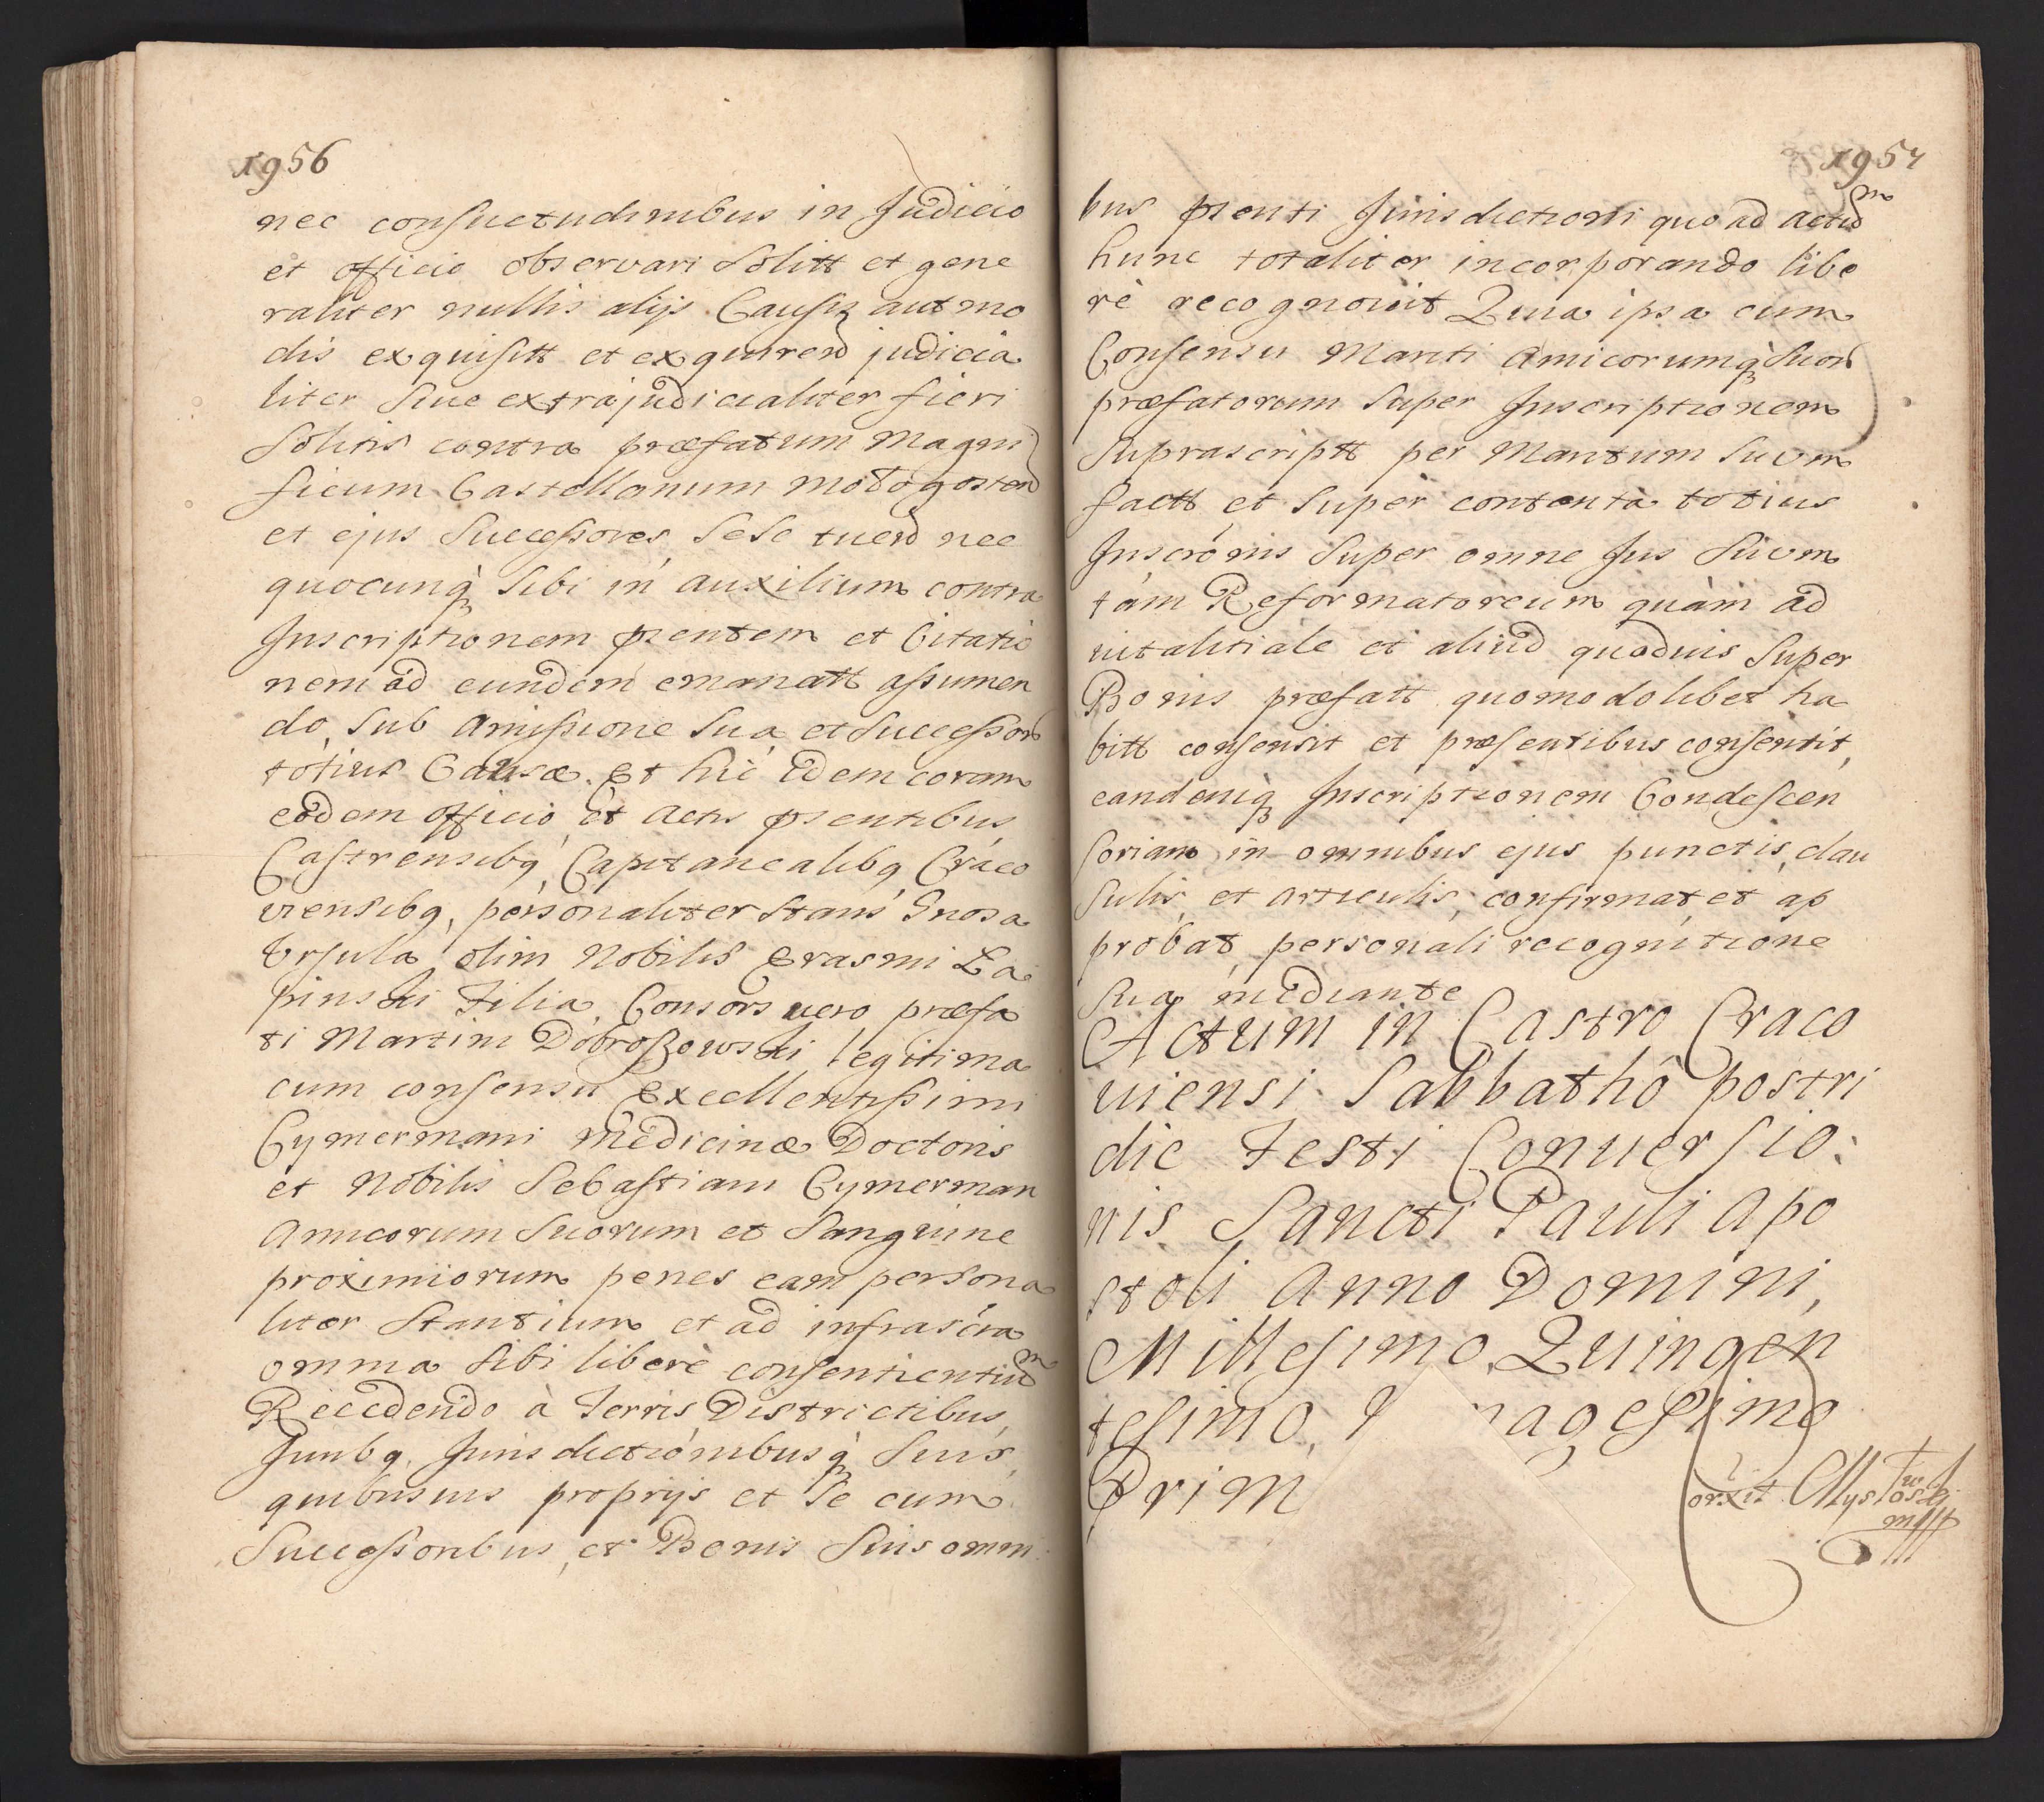 1956
nec consuetudinibus in Judicio
et officio observari Solitt et gene
raliter nullis alijs Causis aut mo
dis exquisitt et exquirend judicia
liter Siue extrajudicialiter fieri
Solitis contra præfatum Magni
ficum Castellanum Małogosten
et ejus Successores Sese tuend nec
quocunq sibi in auxilium contra
Inscriptionem psentem et Citatio
nem ad eundem emanatt assumen
do, Sub Amissione Sua et Successor
totius Causæ. Et hic idem coram
eodem officio et Actis psentibus
Castrensibq Capitanealibq Craco
viensibq, personaliter Stans Gnosa
Vrsula olim Nobilis Erasmi La
pinski Filia, Consors vero præfa
ti Martini Dobroszowski legitima
cum consensu Excellentissimi
Cymermani Medicinæ Doctoris
et Nobilis Sebastiani Cymerman
Amicorum Suorum et Sanguine
proximiorum penes eam persona
liter Stantium et ad infrascra
omnia Sibi liberè consentientium
Recedendo à Terris Districtibus,
Juribq Jurisdictionibusq Suis,
quibusuis proprijs et Se cum
Successoribus, et Bonis Suis omni
1957
bus psenti Jurisdictioni quo ad actum
hunc totaliter incorporando libe
rè recognouit Quia ipsa cum
Consensu Mariti Amicorumq Suor
præfatorum Super Inscriptionem
Suprascriptt per Maritum Suum
factt et Super contenta totius
Inscrónis Super omne Jus Suum
tàm Reformatorium quàm ad
uitalitiale et aliud quoduis Super
Bonis præfatt quomodolibet ha
bitt consensit et præsentibus consentit,
eandemq Inscriptionem Condescen
soriam in omnibus ejus punctis, clau
Sulis, et articulis, confirmat et ap
probat, personali recognitione
Sua mediante
Actum in Castro Craco
uiensi Sabbathô postri
die Festi Conuersio:
nis Sancti Pauli Apo
stoli Anno Domini,
Millesimo, Quingen
tesimo, nagesimo
Prim